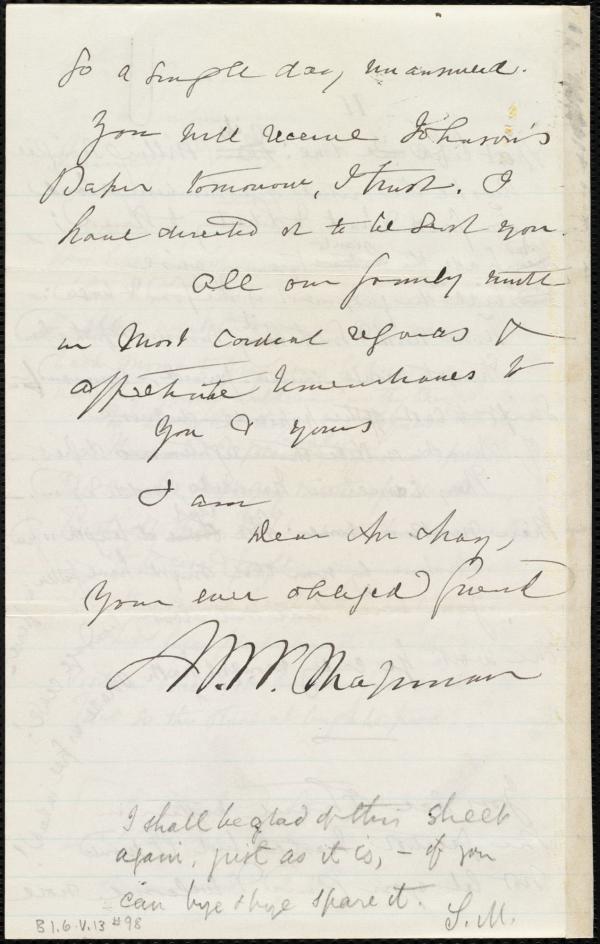 go a single day, unanswered.
You will receive Johnson's
Paper tomorrow, I trust. I
have directed it to be sent you.
All our family unite
in most cordial regards &
affectionate remembrances to
you & yours
I am
Dear Mr May,
Your ever obliged friend
M. W. Chapman
I shall be glad of this sheet
again, just as it is, – if you
can bye & bye spare it.
S. M.
B 1.6 V.13 #98